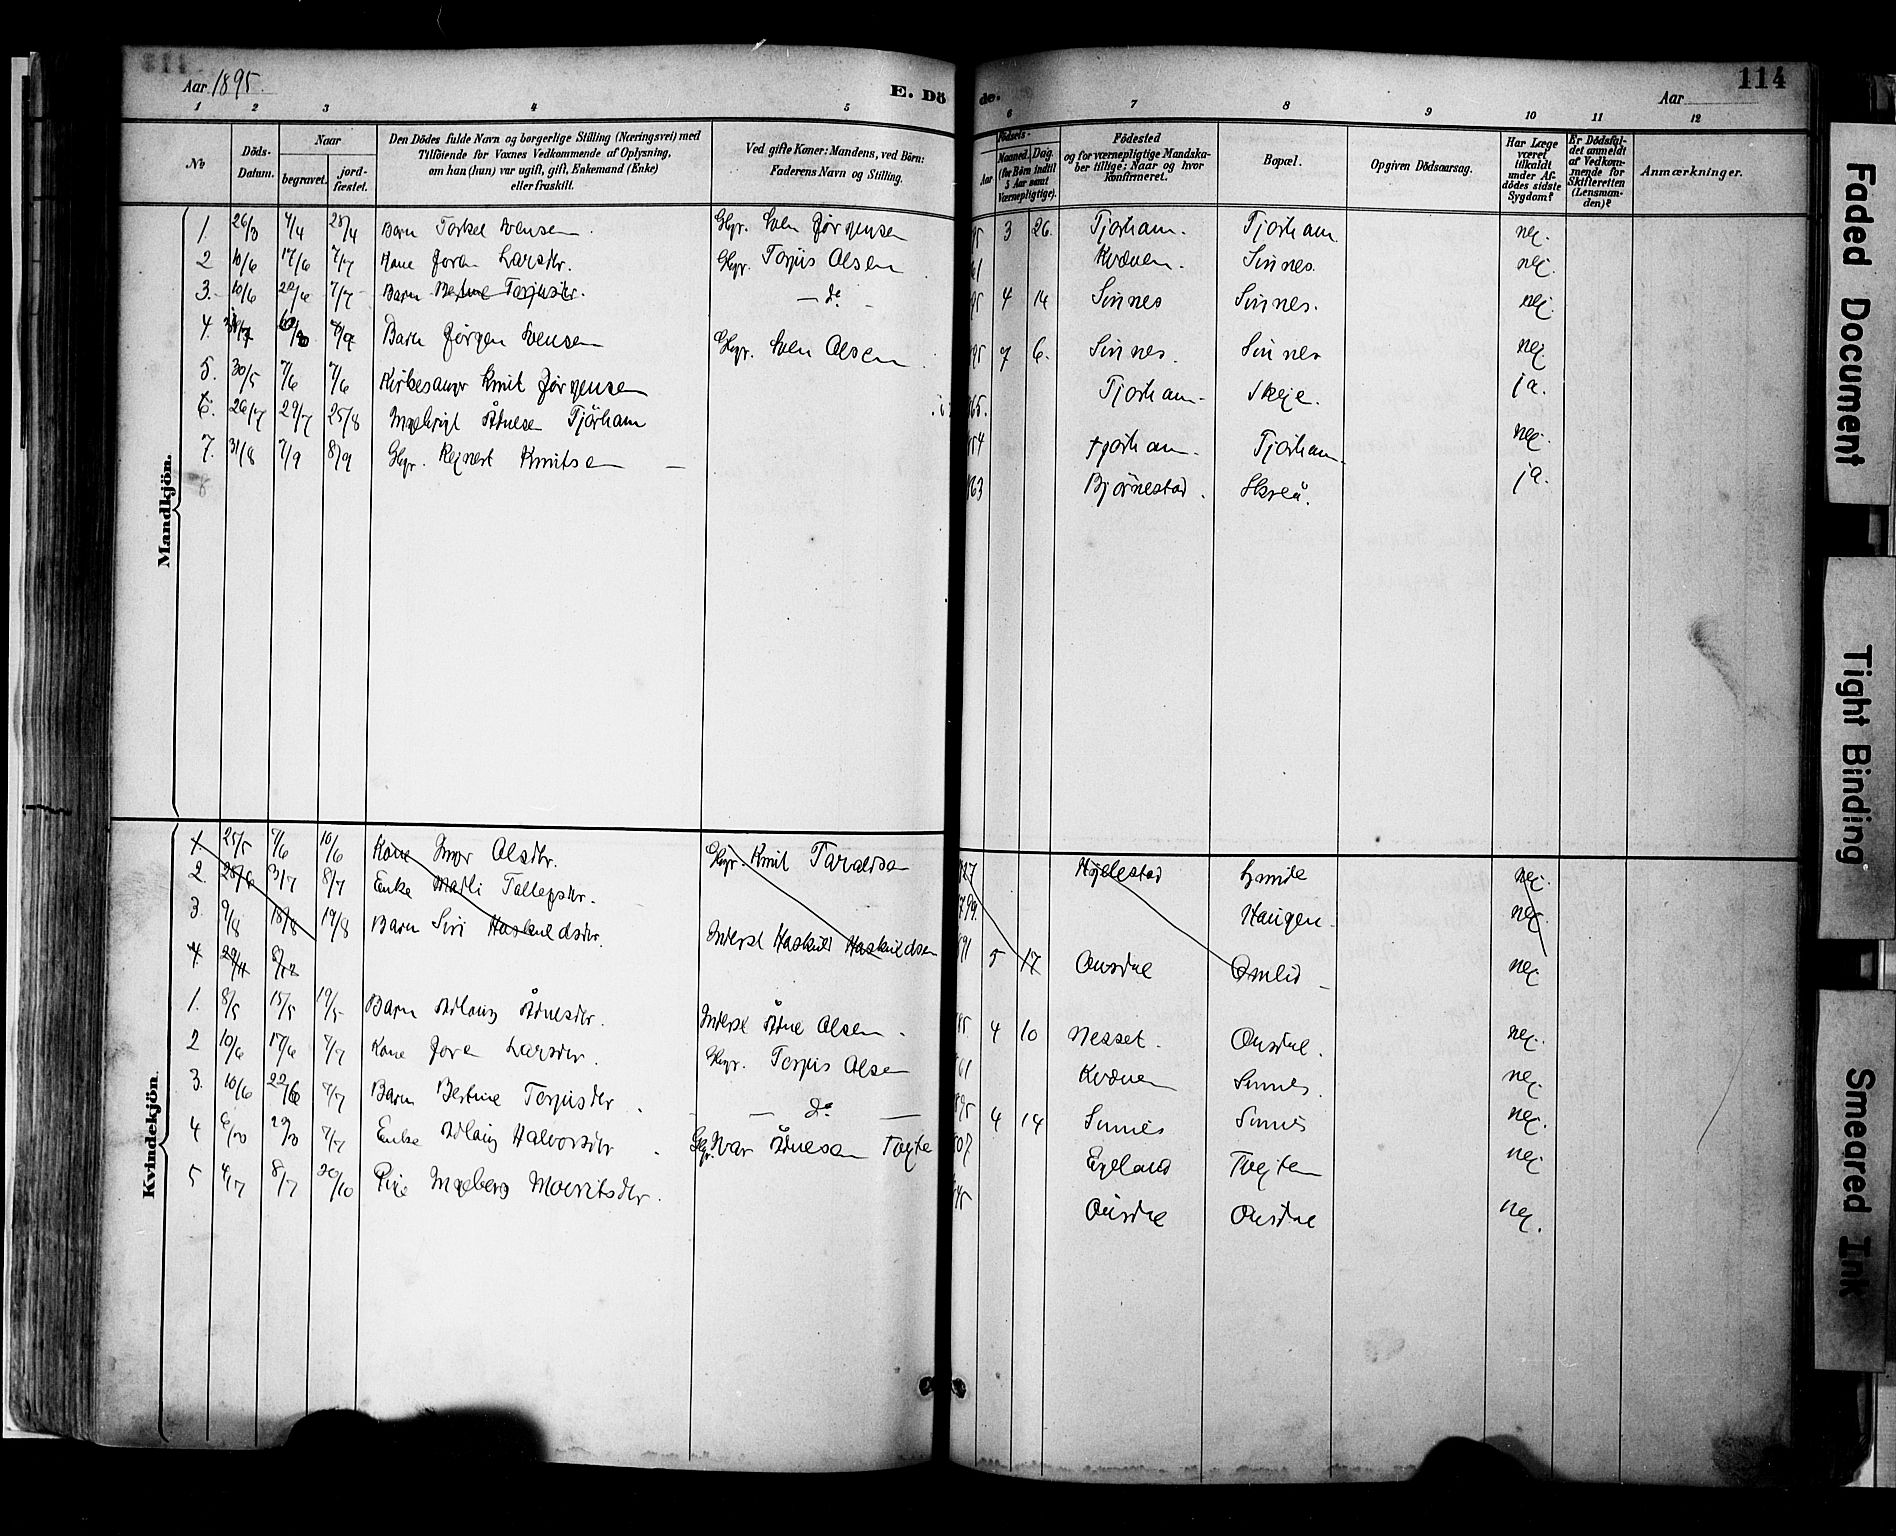 Aar 1895.
E. Dö
de.
Aar
114
1 2 3 4 5 6 7 8 9 10 11 12
No
Döds-Datum.
Naar
begravet.
jord-fæstet.
Den Dödes fulde Navn og borgerlige Stilling (Næringsvei) med
Tilföiende for Voxnes Vedkommende af Oplysning,
om han (hun) var ugift, gift, Enkemand (Enke)
eller fraskilt.
Ved gifte Koner: Mandens, ved Börn:
Faderens Navn og Stilling.
Födsels-
Aar
Maaned. Dag.
(for Börn indtil
5 Aar samt
Værnepligtige).
Födested
og for værnepligtige Mandska-
ber tillige: Naar og hvor
konfirmeret.
Bopæl.
Opgiven Dödsaarsag.
Har Læge
været
tilkaldt
under Af-
dödes sidste
Sygdom?
Er Dödsfal-
det anmeldt
af Vedkom-
mende for
Skifteretten
(Lensman-
den)?
Anmærkninger.
Mandkjön.
1. 26/3 4/4 28/4 Barn Torkel Svensen. Gbr. Sven Jørgensen 95 3 26. Tjorham. Tjorham nej.
2 10/6 17/6 7/7 Kone Joren Larsdtr. Gbr. Torjus Olsen 61 Kvæven. Sinnes. nej.
3. 10/6 22/6 7/7 Barn Bertine Torjusdtr. — do — 95 4 14 Sinnes Sinnes. nej.
4. Barn Jørgen Svensen Gbr. Sven Olsen. 95 7 6. Sinnes. Sinnes nej
5. 30/5 7/6 7/6 Kirkesanger Knut Jørgensen 65. Tjorham Skeje. ja.
6. 26/7 29/7 25/8 Ingebrigt Ådnesen Tjörham 54 Tjorham. Tjorham. nej.
7. 31/8 7/9 8/9 Gbr. Rejnert Knutsen — 63 Bjørnestad. Skreå. ja.
8
Kvindekjön.
1. 25/5 7/6 10/6 Kone Inger Olsdtr. Gbr. Knut Taraldsen 27 Hyllestad nej.
2. 28/6 3/7 8/7 Enke Malli Tollefsdtr. 799. Haugen. nej.
3. 9/8 18/8 19/8 Barn Siri Haskuldsdtr. Inderst Haskuld Haskuldsen 91 5 17 Ousdal Omlid nej
4. 29/11 8/12
1. 8/5 15/5 19/5 Barn Adlaug Ådnesdtr. Inderst Ådne Olsen. 95. 4 10 Nesset. Ousdal. nej.
2 10/6 17/6 7/7 Kone Joren Larsdtr. Gbr. Torjus Olsen 61 Kvæven Sinnes. nej.
3. 10/6 22/6 7/7 Barn Bertine Torjusdtr. — do — 895 4 14 Sinnes Sinnes nej.
4 7/7 Enke Adlaug Halvorsdtr. Gbr. Ivar Ådnesen Tvejte 07 Egeland Tvejten nej
5 4/7 8/7 20/10 Pige Ingeborg Mouritsdtr. 45 Ousdal Ousdal nej.
Faded Document
Tight Binding
Smeared Ink